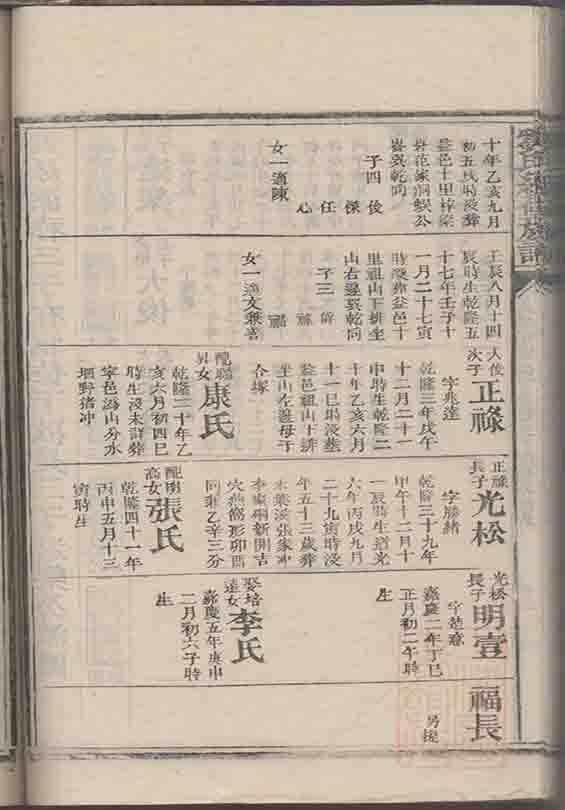 十年乙亥九月
初五戌時沒葬
益邑十里梓梁
乾向
子四 俊
傑
任
心
女一適陳
壬辰八月十四
辰時生乾隆五
十七年壬子十
一月二十七寅
時沒葬益邑十
里祖山下排坐
山右邊巽乾向
子三
女一適文
大俊
次子
正祿
字兆達
乾隆三年戊午
十二月二十一
申時生乾隆二
十年乙亥六月
十一巳時沒葬
益邑祖山下排
坐山左邊母子
合塚
配聯
昇女
康氏
乾隆二十年乙
亥六月初四巳
時生沒未詳葬
寧邑溈山分水
坳野猪冲
正祿
長子
光松
字勝緒
乾隆三十九年
甲午十二月十
一辰時生道光
六年丙戌九月
二十九寅時沒
年五十三歲葬
木
李家
穴燕窩形卯酉
同乘乙辛三分
配明
高女
張氏
乾隆四十一年
丙申五月十三
寅時生
光松
長子
明壹
字楚
嘉慶二年丁巳
正月初二午時
生
娶培
遠女
李氏
嘉慶五年庚申
二月初六子時
生
福長
另提